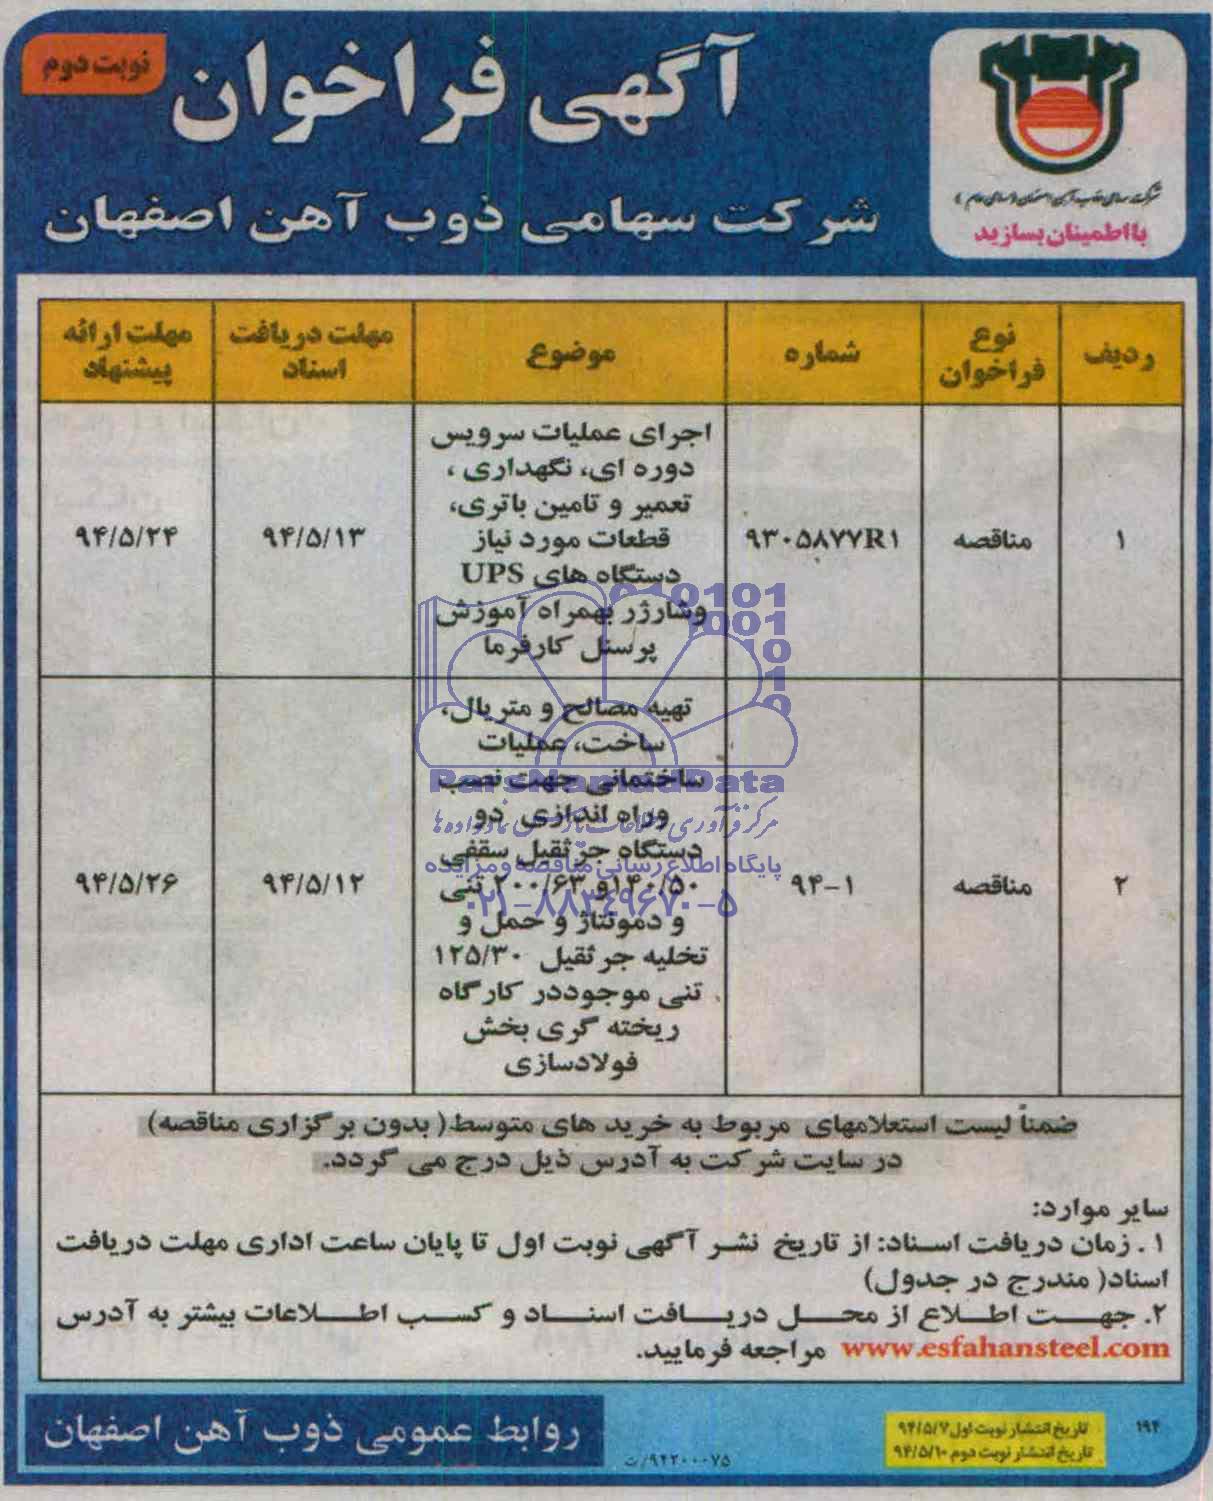 نوبت دوم
آگهی فراخوان
شرکت سهامی ذوب آهن اصفهان
با اطمینان بسازید
ردیف
نوع فراخوان
شماره
موضوع
مهلت دریافت اسناد
مهلت ارائه پیشنهاد
۱
مناقصه
۹۳۰۵۸۷۷R۱
اجرای عملیات سرویس
دوره ای، نگهداری ،
تعمیر و تامین باتری،
قطعات مورد نیاز
دستگاه های UPS
وشارژر بهمراه آموزش
پرسنل کارفرما
۹۴/۵/۱۳
۹۴/۵/۲۴
۲
مناقصه
۹۴-۱
تهیه مصالح و متریال،
ساخت، عملیات
ساختمانی جهت نصب
وراه اندازی دو
دستگاه جرثقیل سقفی
۱۴۰/۵۰و ۲۰۰/۶۳ تنی
و دمونتاژ و حمل و
تخلیه جرثقیل ۱۲۵/۳۰
تنی موجوددر کارگاه
ریخته گری بخش
فولادسازی
۹۴/۵/۱۲
۹۴/۵/۲۶
ParsNamadData
پایگاه اطلاع رسانی مناقصه و مزایده
۰۲۱-۸۸۳۴۹۶۷۰-۵
ضمناً لیست استعلامهای مربوط به خرید های متوسط( بدون برگزاری مناقصه)
در سایت شرکت به آدرس ذیل درج می گردد.
سایر موارد:
۱. زمان دریافت اسناد: از تاریخ نشر آگهی نوبت اول تا پایان ساعت اداری مهلت دریافت
اسناد( مندرج در جدول)
۲. جهت اطلاع از محل دریافت اسناد و کسب اطلاعات بیشتر به آدرس
www.esfahansteel.com مراجعه فرمایید.
۱۹۴
تاریخ انتشار نوبت اول ۹۴/۵/۷
تاریخ انتشار نوبت دوم ۹۴/۵/۱۰
۹۴۲۰۰۰۷۵/ت
روابط عمومی ذوب آهن اصفهان